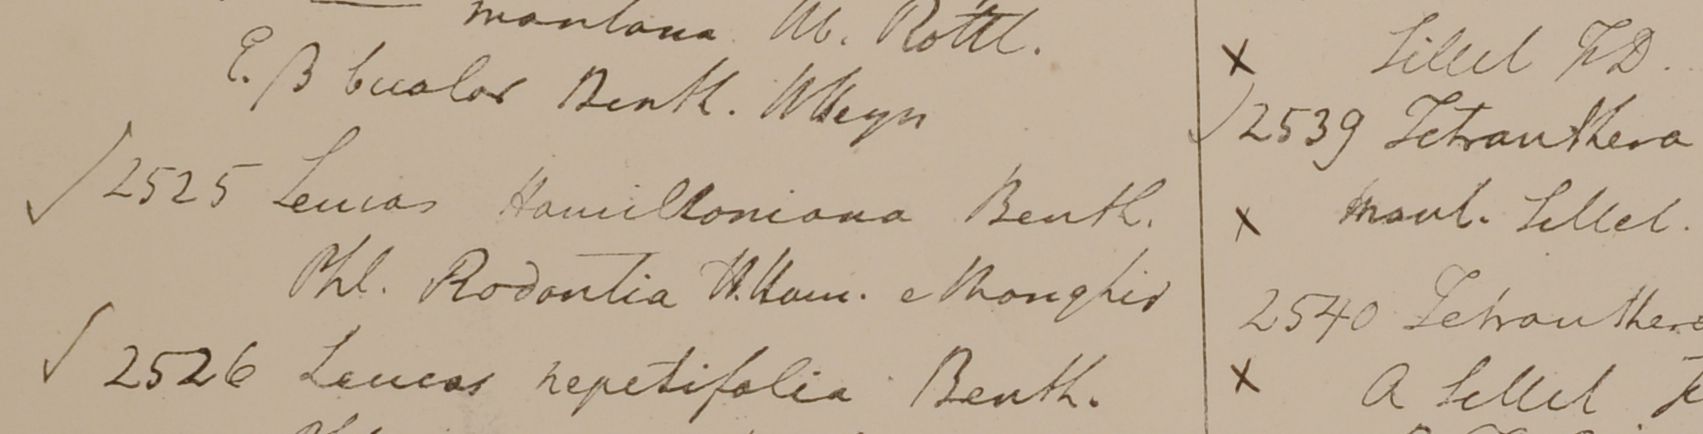 montana Ab. Rottl.
E. β bicolor Benth. Wheyn
√ 2525 Leucas Hamiltoniana Benth.
Phl. Rodontia H. Ham. e Monghir
√ 2526 Leucas nepetifolia Benth.
× Sillet FD.
√ 2539 Tetranthera
× Mont. Sillet.
2540 Tetranthera
× A Sillet